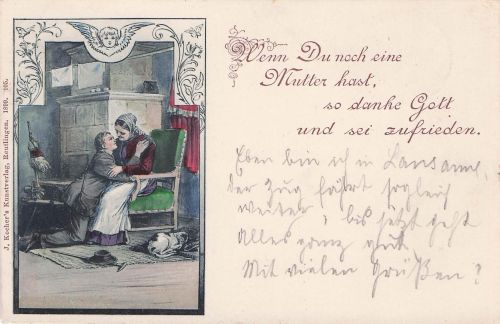 Wenn Du noch eine
Mutter hast,
so danke Gott
und sei zufrieden.
Eben bin ich in Lausanne,
der Zug fährt sogleich
weiter, bis jetzt geht
alles ganz gut.
Mit vielen Grüßen
J. Kocher's Kunstverlag, Reutlingen. 1899. 105.